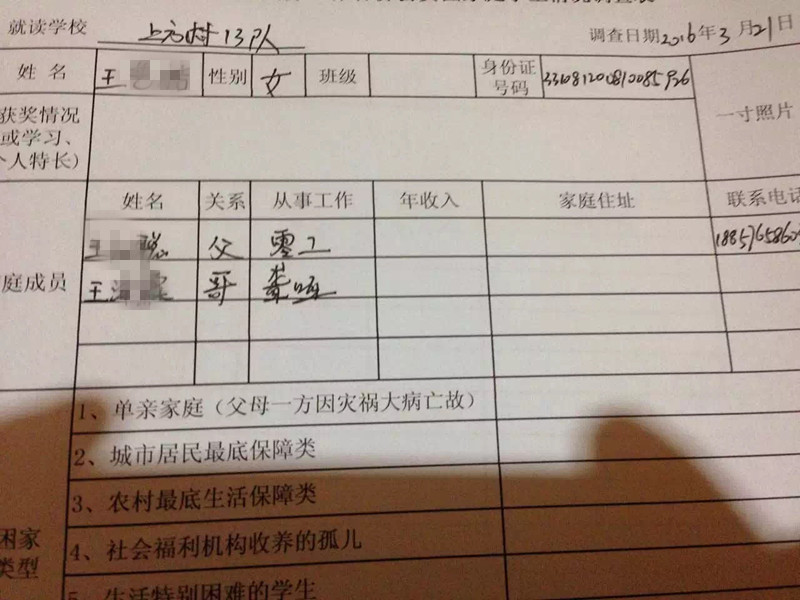 就读学校 上方村13队 调查日期2016年3月21日
姓名 王 性别 女 班级 身份证号码
获奖情况
或学习、
个人特长) 一寸照片
姓名 关系 从事工作 年收入 家庭住址 联系电话
王 父 零工
庭成员 王 哥 聋哑
1、单亲家庭（父母一方因灾祸大病亡故）
2、城市居民最底保障类
3、农村最底生活保障类
困家 4、社会福利机构收养的孤儿
类型
5、生活特别困难的学生